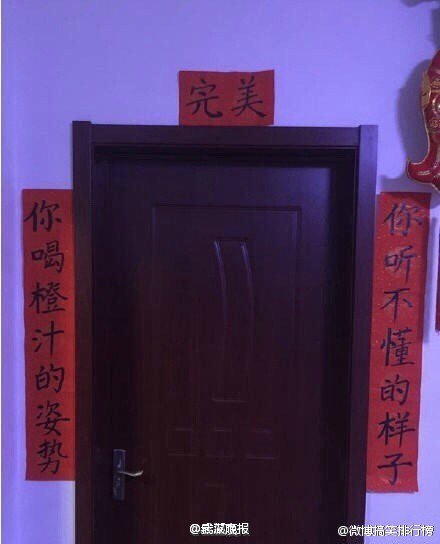 完美
你听不懂的样子
你喝橙汁的姿势
@微博搞笑排行榜